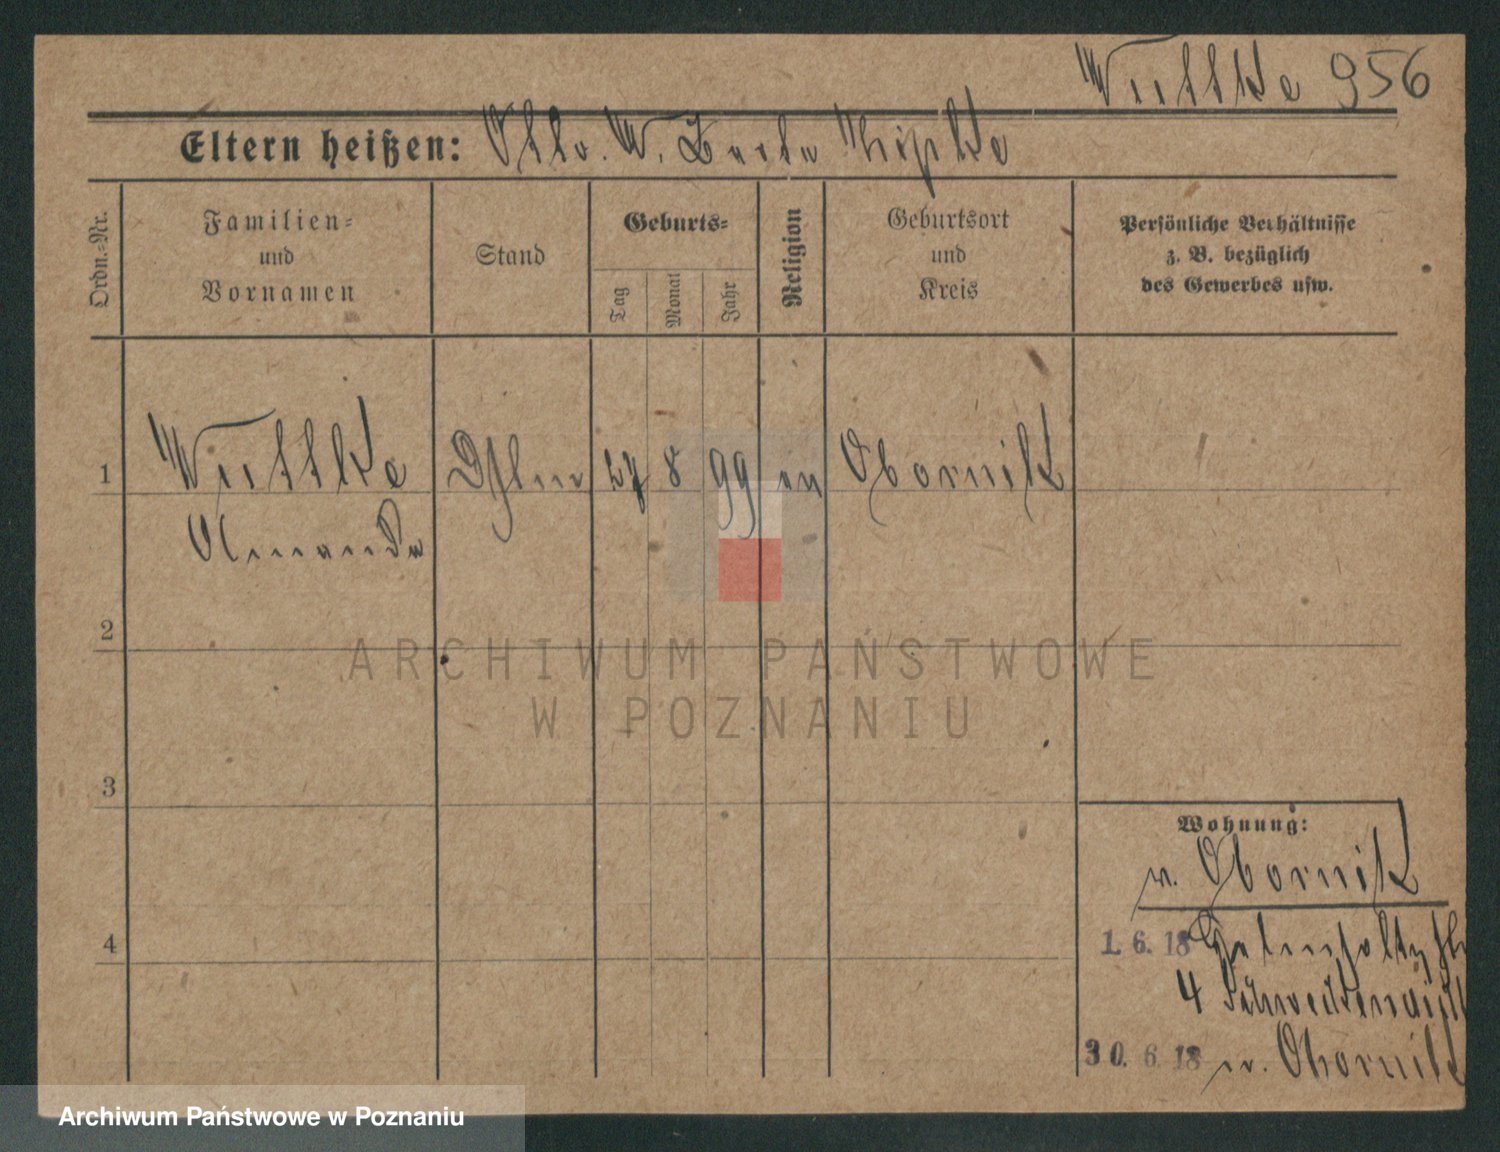 Wuttke 956
Eltern heißen: Otto. W. Berta
Ordn.-Nr.
Familien- und Vornamen
Stand
Geburts-
Tag
Monat
Jahr
Religion
Geburtsort und Kreis
Persönliche Verhältnisse
z. B. bezüglich
des Gewerbes usw.
1 Wuttke 27 8 99 ev Obornik
Amanda
2
ARCHIWUM PAŃSTWOWE
W POZNANIU
3
Wohnung:
v. Obornik
4
1. 6. 18
4
30. 6. 18 n. Obornik
Archiwum Państwowe w Poznaniu